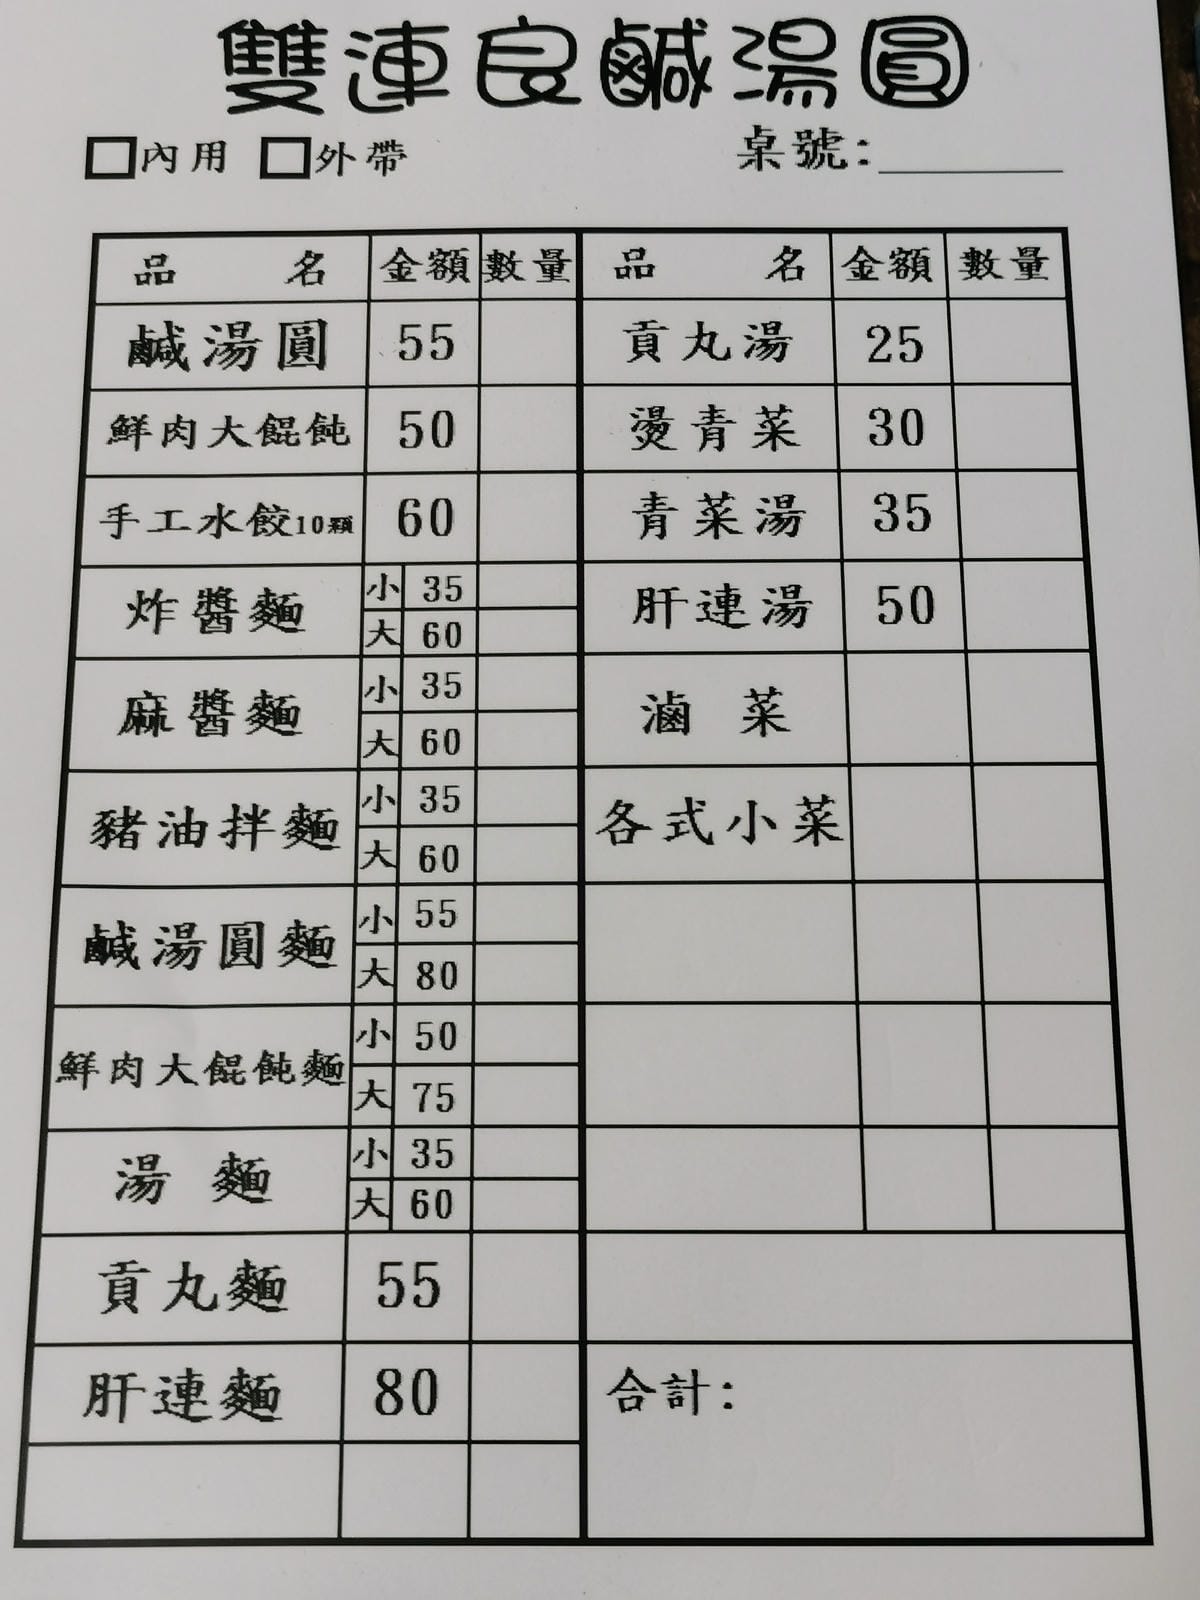 雙連良鹹湯圓
□內用 □外帶 桌號:
品名 金額 數量 品名 金額 數量
鹹湯圓 55 貢丸湯 25
鮮肉大餛飩 50 燙青菜 30
手工水餃10顆 60 青菜湯 35
炸醬麵 小 35 肝連湯 50
大 60
麻醬麵 小 35 滷菜
大 60
豬油拌麵 小 35 各式小菜
大 60
鹹湯圓麵 小 55
大 80
鮮肉大餛飩麵 小 50
大 75
湯麵 小 35
大 60
貢丸麵 55
肝連麵 80 合計: